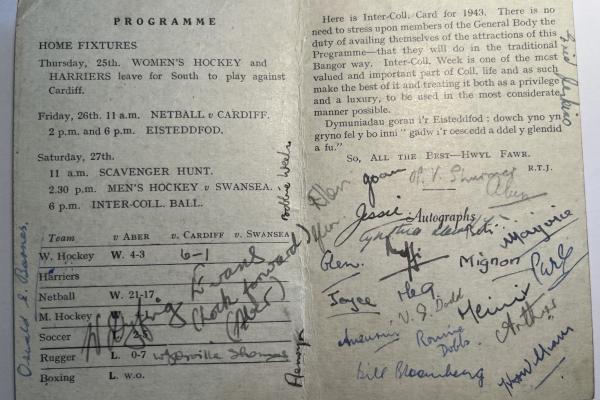 PROGRAMME
HOME FIXTURES
Thursday, 25th. WOMEN'S HOCKEY and
HARRIERS leave for South to play against
Cardiff.
Friday, 26th. 11 a.m. NETBALL v CARDIFF.
2 p.m. and 6 p.m. EISTEDDFOD.
Saturday, 27th.
11 a.m. SCAVENGER HUNT.
2.30 p.m. MEN'S HOCKEY v SWANSEA.
6 p.m. INTER-COLL. BALL.
Team v ABER v. CARDIFF v. SWANSEA
W. Hockey W. 4-3 6-1
Harriers
Netball W. 21-17
M. Hockey W.
Soccer L. 2-5
Rugger L. 0-7
Boxing L. w.o.
Evans
(Aber)
Oswald E. Barnes.
Here is Inter-Coll. Card for 1943. There is no
need to stress upon members of the General Body the
duty of availing themselves of the attractions of this
Programme—that they will do in the traditional
Bangor way. Inter-Coll. Week is one of the most
valued and important part of Coll. life and as such
make the best of it and treating it both as a privilege
and a luxury, to be used in the most considerate
manner possible.
Dymuniadau goran i'r Eisteddfod : dowch yno yn
gryno fel y bo inni " gadw i'r oescedd a ddel y glendid
a fu."
So, ALL THE BEST—HWYL FAWR.
R.T.J.
Aber
Jessie
Autographs
Glen.
Mignon
Marjorie
Joyce
Meg
V. J. Dodd
Aneurin
Ronnie
Dobbs.
Arthur
Bill Bloomberg